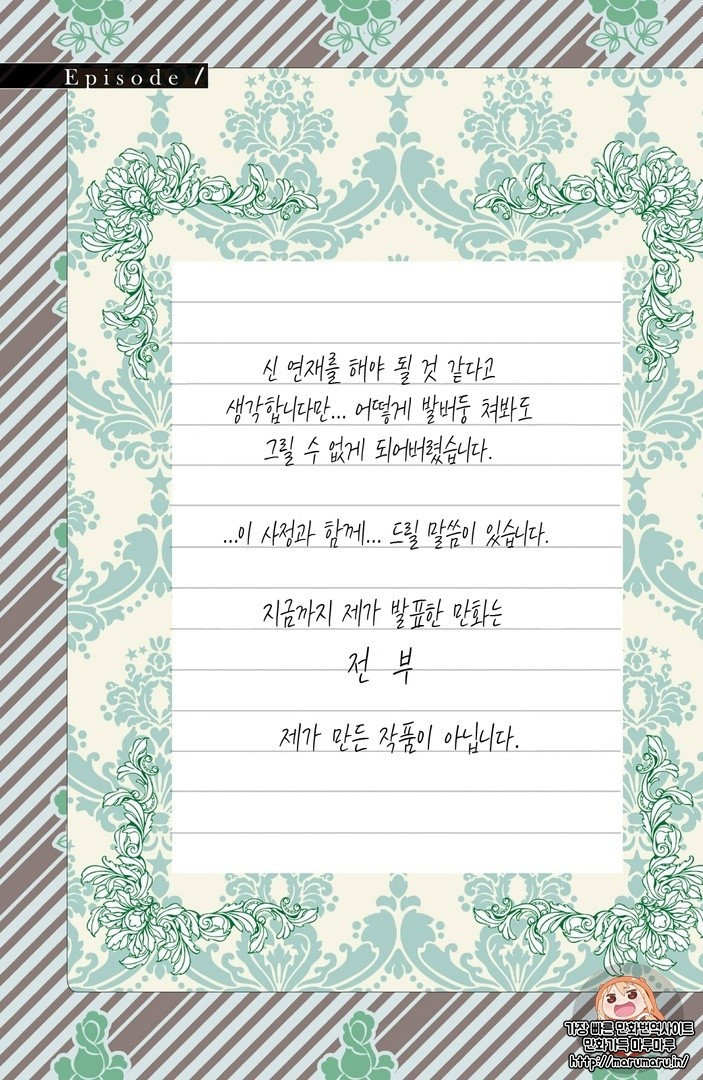 Episode 1
신 연재를 해야 될 것 같다고
생각합니다만... 어떻게 발버둥 쳐봐도
그릴 수 없게 되어버렸습니다.
...이 사정과 함께... 드릴 말씀이 있습니다.
지금까지 제가 발표한 만화는
전 부
제가 만든 작품이 아닙니다.
가장 빠른 만화번역사이트
만화가득 마루마루
http://marumaru.in/